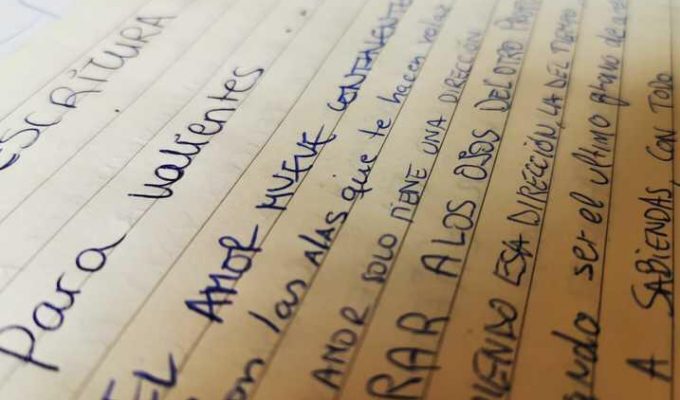 ESCRITURA
Para valientes ...
EL AMOR MUEVE CONTINENTE
las alas que te hacen volar
AMOR SOLO TIENE UNA DIRECCIÓN
RAR A LOS OJOS DEL OTRO
ESA DIRECCIÓN, LA DEL TIEMPO
ser el ultimo
A SABIENDAS, CON TODO